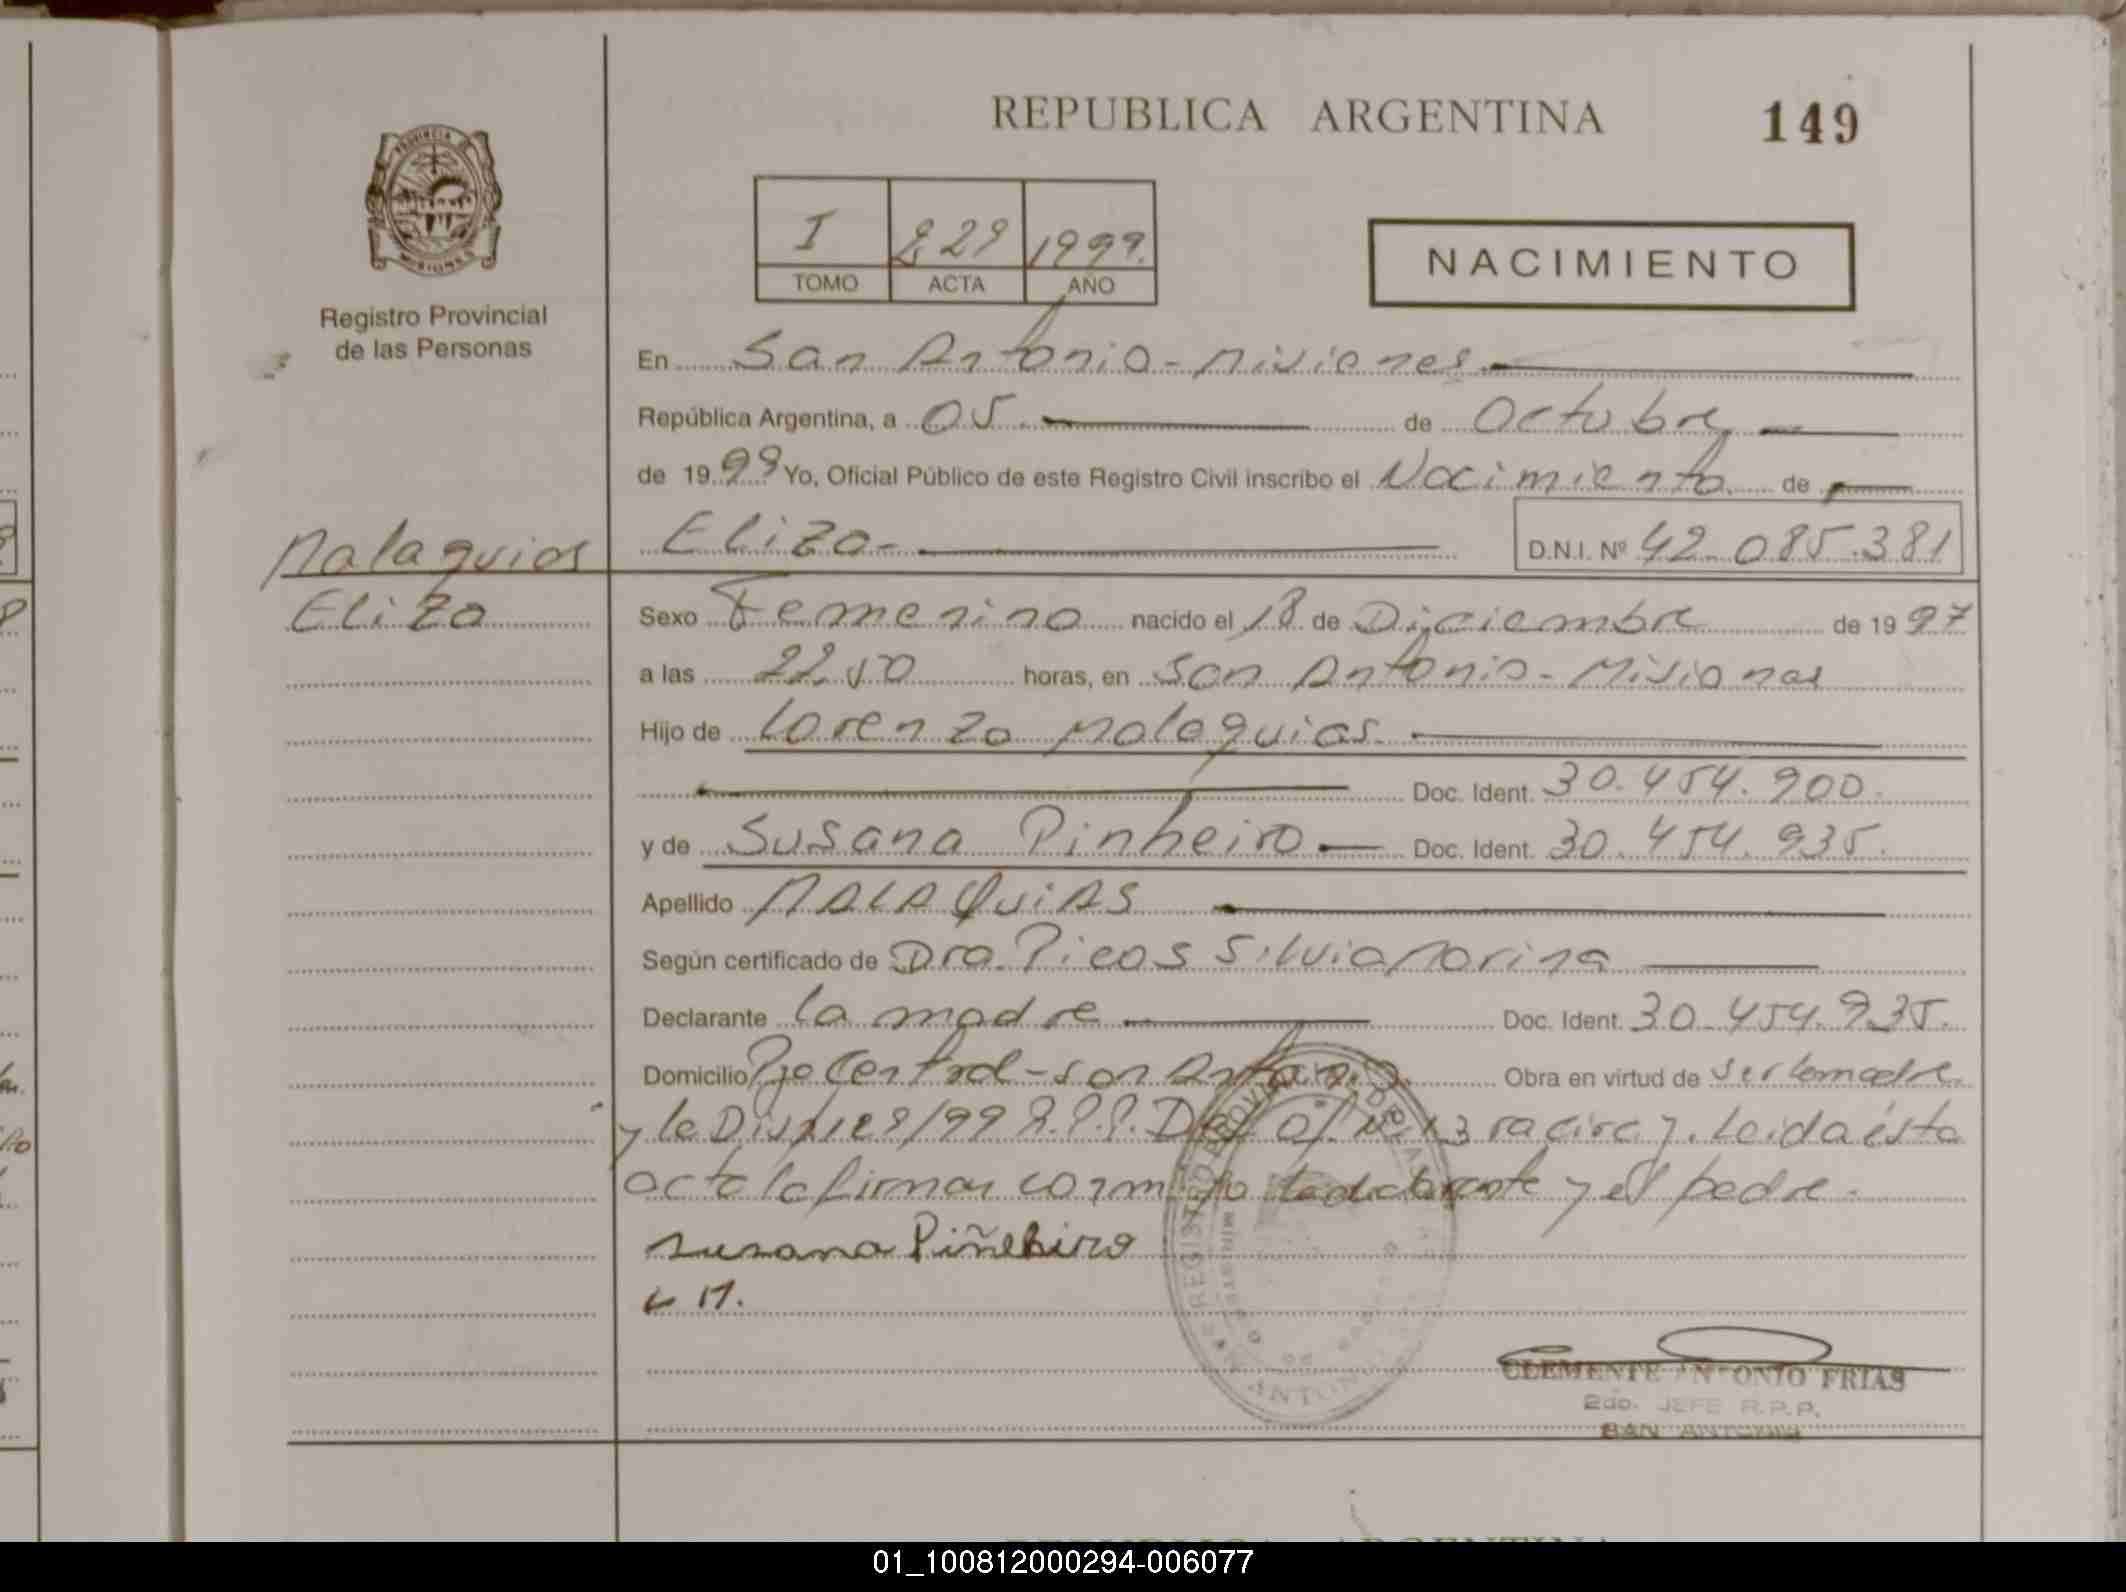 REPUBLICA ARGENTINA
149
PROVINCIA DE
MISIONES
Registro Provincial
de las Personas
I 229 1999.
TOMO ACTA AÑO
NACIMIENTO
En San Antonio - Misiones
República Argentina, a 05 de Octubre
de 1999 Yo, Oficial Público de este Registro Civil inscribo el Nacimiento de
Malaquias Eliza- D.N.I. Nº 42.085.381
Eliza
Sexo Femenino nacido el 18 de Diciembre de 1997
a las 22.50 horas, en San Antonio - Misiones
Hijo de Lorenzo Malaquias.
Doc. Ident. 30.454.900.
y de Susana Pinheiro Doc. Ident. 30.454.935.
Apellido MALAQuiAS
Según certificado de Dra. Picos Silvia Marina
Declarante la madre Doc. Ident. 30.454.935.
Domicilio Pje Central - San Antonio. Obra en virtud de ser la madre
y la /99 R.P.P. Leida ésta
acta la firman conmigo la declarante y el padre.
Susana Piñeheiro
L M.
CLEMENTE ANTONIO FRIAS
2do. JEFE R.P.P.
SAN ANTONIO
REPUBLICA ARGENTINA
01_100812000294-006077